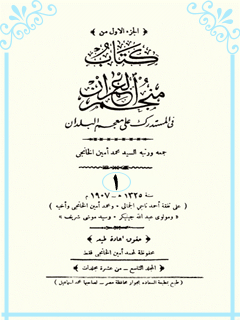 ﴿ الجزء الاول من ﴾
كتاب
منجم العمران
في المستدرك على معجم البلدان
جمعه ورتبه السيد محمد أمين الخانجي
١
سنة ١٣٢٥ هـ - ١٩٠٧ م
( على نفقة أحمد ناجي الجمالي - ومحمد أمين الخانجي وأخيه )
« ومولوى عبد الله جيتيكر - وسيد موسى شريف »
حقوق اعادة طبعه
محفوظة لمحمد أمين الخانجي فقط
المجلد التاسع - من عشرة مجلدات
( طبع بمطبعة السعادة بجوار محافظة مصر - لصاحبها محمد اسماعيل )